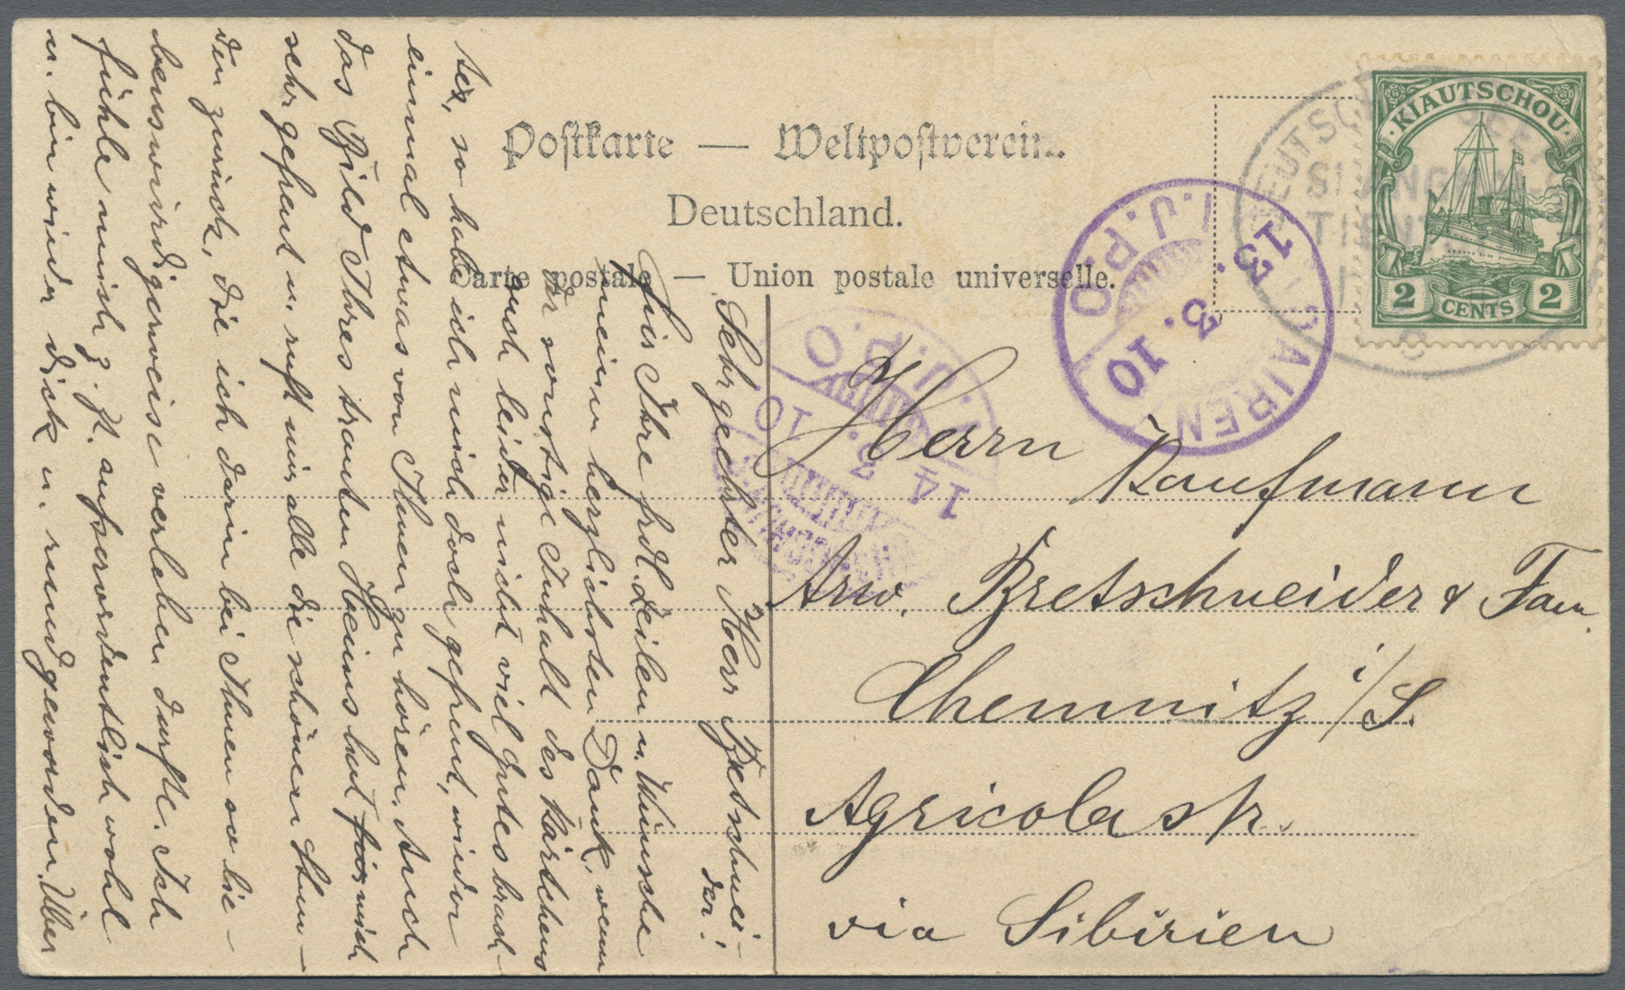 Postkarte — Weltpostverein.
Deutschland.
Carte postale — Union postale universelle.
KIAUTSCHOU
2 CENTS 2
DEUTSCHE SEEP
SHANGHAI
TIENTSIN
c
I.J.P.O.
13. 3. 10
DAIREN
I.J.P.O
14 3. 10
Herrn
Kaufmann
Arw. Bretschneider & Fam.
Chemnitz i/S.
Agricolastr.
via Sibirien
Sehr geehrter Herr Bretschnei-
der!
Für Ihre frdl. Zeilen u. Wünsche
meinen herzlichsten Dank, wenn
der sonstige Inhalt des Kärtchens
auch leider nicht viel Gutes brach-
te, so habe ich mich doch gefreut, wieder
einmal etwas von Ihnen zu hören. Auch
das Bild Ihres trauten Heims hat mich
sehr gefreut u. ruft mir alle die schönen Stun-
den zurück, die ich darin bei Ihnen so lie-
benswürdigerweise verleben durfte. Ich
fühle mich z. Zt. außerordentlich wohl
u. bin wieder dick u. rund geworden. Über